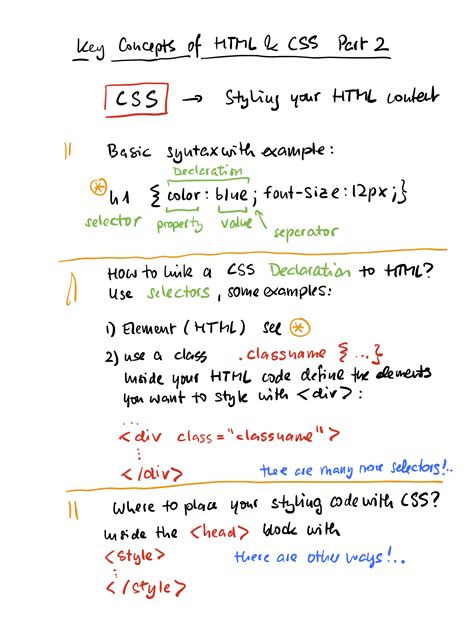 Key Concepts of HTML & CSS Part 2
CSS → Styling your HTML content
Basic syntax with example:
Declaration
* h1 { color: blue; font-size: 12px; }
selector property value separator
How to link a CSS Declaration to HTML?
Use selectors, some examples:
1) Element (HTML) see *
2) use a class .classname { ... }
Inside your HTML code define the elements
you want to style with <div>:
...
<div class="classname">
...
</div> there are many more selectors!..
Where to place your styling code with CSS?
Inside the <head> block with
<style> there are other ways!..
...
</style>